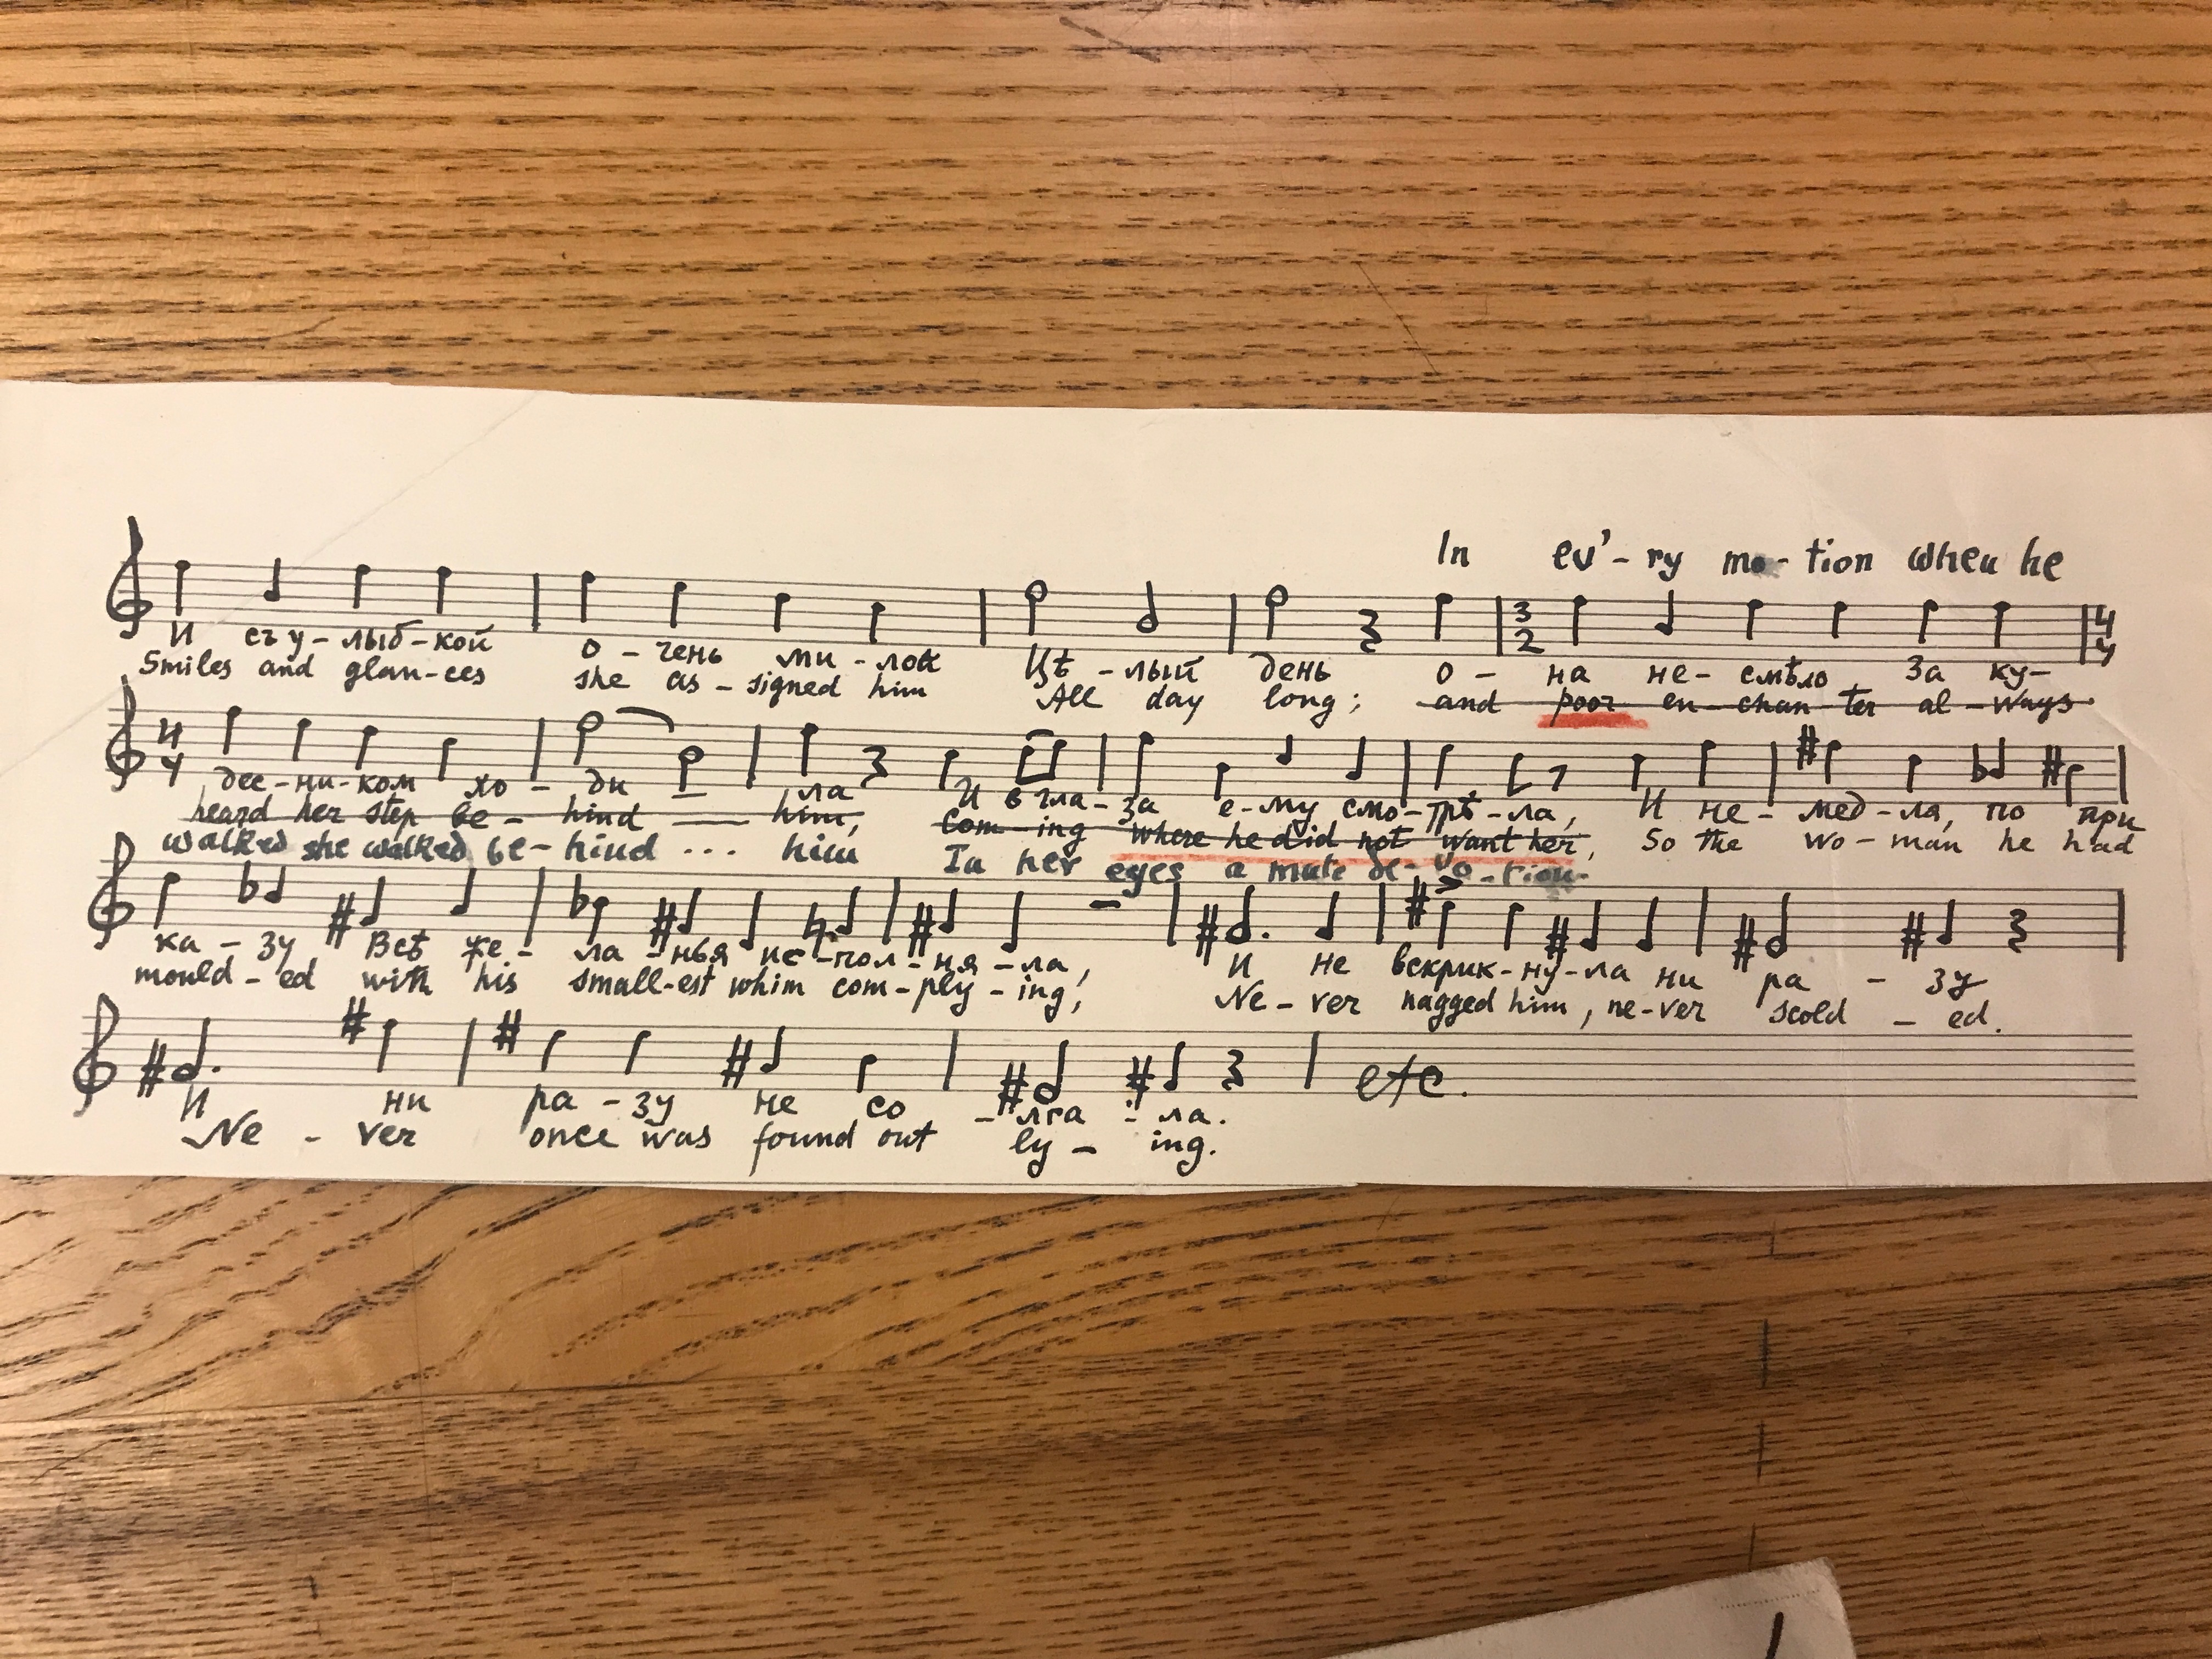 In ev'-ry mo-tion when he
3 2 4 4
И съ у-лыб-кой о-чень ми-лой Цѣ-лый день о-на не-смѣло за ку-
Smiles and glan-ces she as-signed him All day long; and poor en-chan-ter al-ways
4 4
дес-ни-ком хо-ди-ла И в гла-за е-му смо-трѣ-ла, И не-мед-ла, по при
heard her step be-hind him, com-ing where he did not want her, So the wo-man he had
walked she walked be-hind ... him In her eyes a mute de-vo-tion-
ка-зу Всѣ же-ла-нья ис-пол-ня-ла, И не вскрик-ну-ла ни ра-зу
mould-ed with his small-est whim com-ply-ing, Ne-ver nagged him, ne-ver scold-ed.
etc.
И ни ра-зу не со-лга-ла.
Ne-ver once was found out ly-ing.